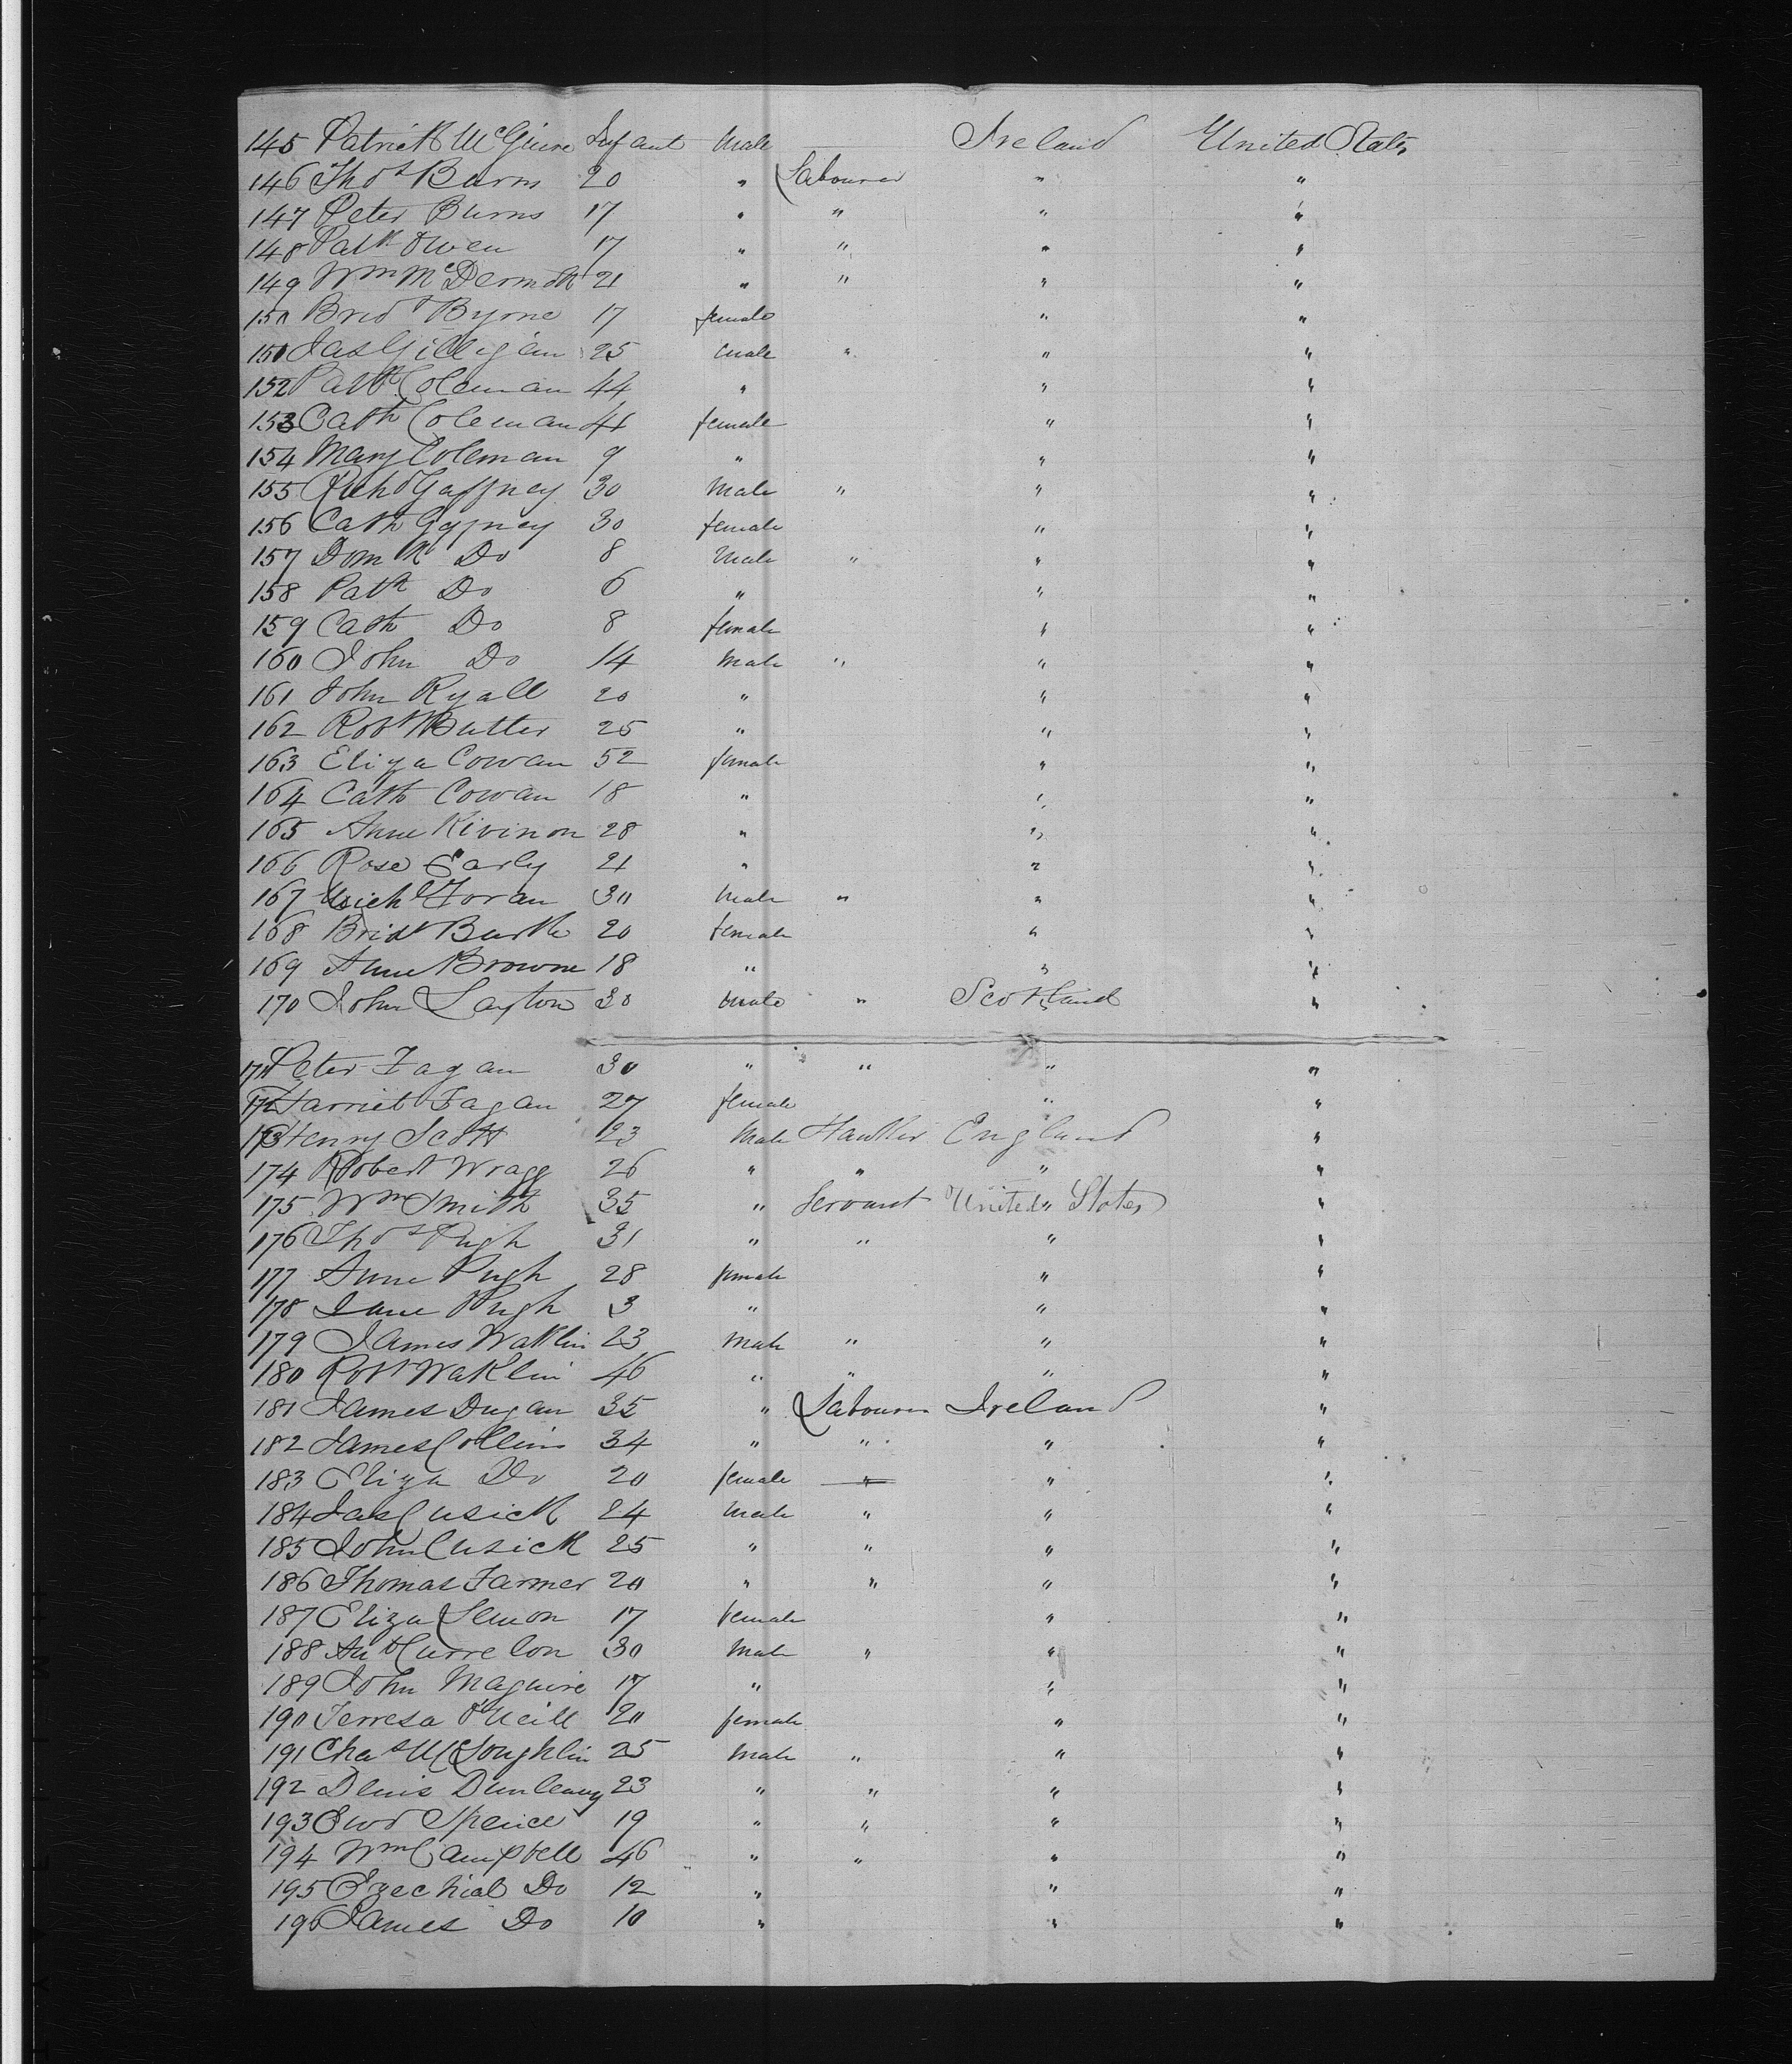 145 Patrick McGuire Infant Male Ireland United States
146 Thos Burns 20 " Labourer " "
147 Peter Burns 17 " " " "
148 Patk Owen 17 " " " "
149 Wm McDermott 21 " " " "
150 Bridt Byrne 17 female " "
150 Jas Gilligan 25 male " " "
152 Patk Coleman 44 " " "
153 Cath Coleman 41 female " "
154 Mary Coleman 9 " " "
155 Richd Gaffney 30 Male " " "
156 Cath Gaffney 30 female " "
157 Domk Do 8 Male " " "
158 Patk Do 6 " " "
159 Cath Do 8 female " "
160 John Do 14 Male " " "
161 John Ryall 20 " " "
162 Robt Butter 25 " " "
163 Eliza Cowan 52 female " "
164 Cath Cowan 18 " " "
165 Anne Kivinon 28 " " "
166 Rose Early 21 " " "
167 Michl Foran 30 Male " " "
168 Bridt Burke 20 female " "
169 Anne Browne 18 " " "
170 John Layton 30 male " Scotland "
171 Peter Fagan 30 " " " "
172 Harriet Fagan 27 female " "
173 Henry Scott 23 Male Hawker England "
174 Robert Wragg 26 " " " "
175 Wm Smith 35 " Servant United States "
176 Thos Pugh 31 " " " "
177 Anne Pugh 28 female " "
178 Jane Pugh 3 " " "
179 James Waklin 23 Male " " "
180 Robt Waklin 46 " " " "
181 James Dugan 35 " Labourer Ireland "
182 James Collins 34 " " " "
183 Eliza Do 20 female " " "
184 Jas Cusick 24 Male " " "
185 John Cusick 25 " " " "
186 Thomas Farmer 20 " " " "
187 Eliza Lemon 17 female " "
188 Ant Currelon 30 Male " " "
189 John Maguire 17 " " "
190 Terresa O'Neill 20 female " "
191 Chas McLoughlin 25 Male " " "
192 Denis Dunleavy 23 " " " "
193 Ewd Spence 19 " " " "
194 Wm Campbell 46 " " " "
195 Ezechial Do 12 " " "
196 James Do 10 " " "